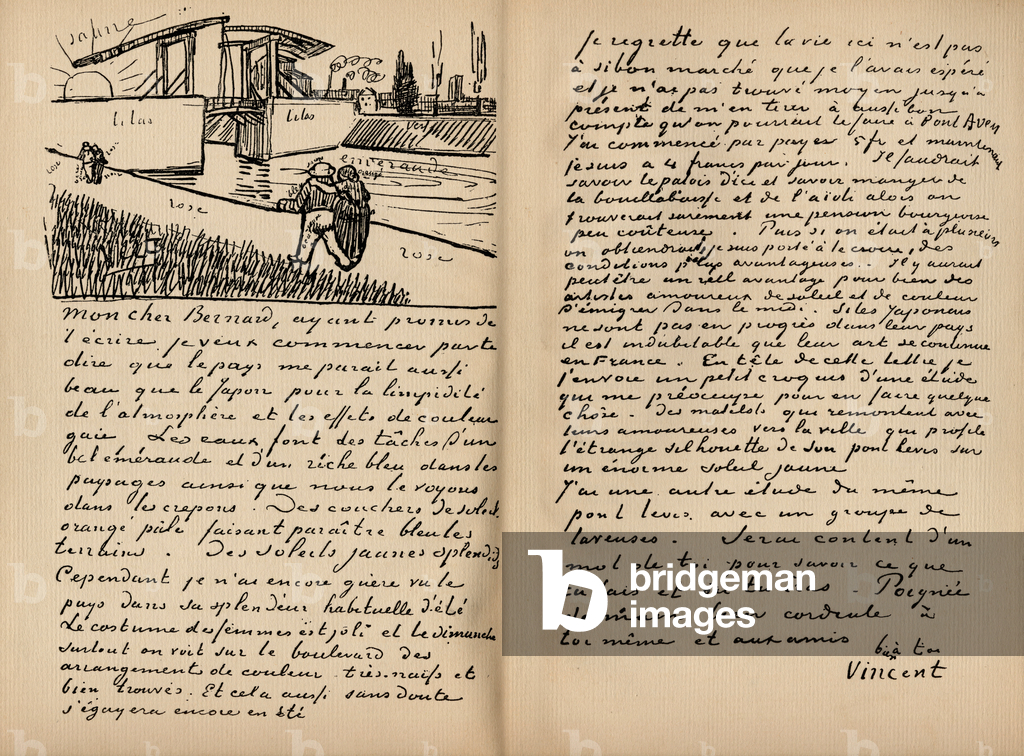 jaune
lilas
lilas
vert
emeraude
rose
rose
rose
Mon cher Bernard, ayant promis de
t'écrire je veux commencer par te
dire que le pays me parait aussi
beau que le Japon pour la limpidité
de l'atmosphère et les effets de couleur
gaie Les eaux font des tâches d'un
bel éméraude et d'un riche bleu dans les
paysages ainsi que nous le voyons
dans les crepons. Des couchers de soleil
orangé pâle faisant paraître bleu les
terrains. Des soleils jaunes splendides
Cependant je n'ai encore guère vu le
pays dans sa splendeur habituelle d'été
Le costume des femmes est joli et le dimanche
surtout on voit sur le boulevard des
arrangements de couleur très naifs et
bien trouvés. Et cela aussi sans doute
s'égayera encore en été
Je regrette que la vie ici n'est pas
à si bon marché que je l'avais espéré
et je n'ai pas trouvé moyen jusqu'à
présent de m'en tirer à aussi bon
compte qu'on pourrait le faire à Pont Aven
J'ai commencé par payer 5 fr et maintenant
je suis a 4 francs par jour. Il faudrait
savoir le patois d'ici et savoir manger de
la bouillabaisse et de l'aïoli alors on
trouverait surement une pension bourgeoise
peu coûteuse. Puis si on était à plusieurs
on obtiendrait, je suis porté à le croire, des
conditions plus avantageuses. Il y aurait
peut être un réel avantage pour bien des
artistes amoureux de soleil et de couleur
d'émigrer dans le midi. Si les Japonais
ne sont pas en progrès dans leur pays
il est indubitable que leur art se continue
en France. En tête de cette lettre je
t'envoie un petit croquis d'une étude
qui me préoccupe pour en faire quelque
chose. Des matelots qui remontent avec
leurs amoureuses vers la ville qui profile
l'étrange silhouette de son pont levis sur
un énorme soleil jaune
J'ai une autre étude du même
pont levis avec un groupe de
laveuses. Serai content d'un
mot de toi pour savoir ce que
tu fais et Poignée
de main bien cordiale à
toi même et aux amis
b. à toi
Vincent
b bridgeman
images